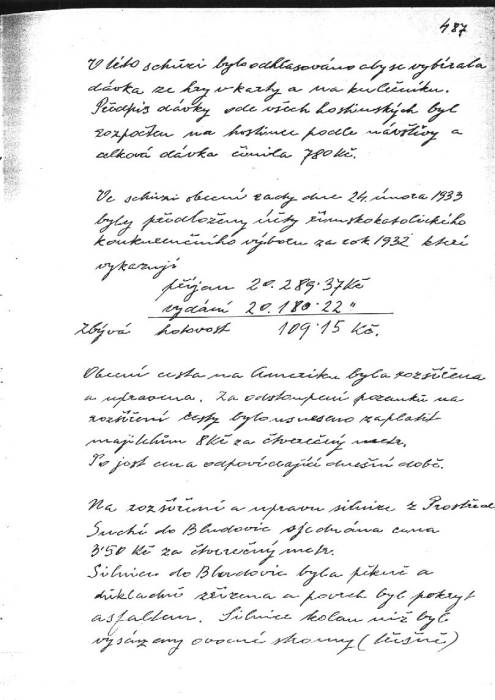 487
V této schůzi bylo odhlasováno aby se vybírala
dávka ze hry v karty a na kulečníku.
Předpis dávky ode všech hostinských byl
rozpočten na hostince podle návštěvy a
celková dávka činila 780 Kč.
Ve schůzi obecní rady dne 24. února 1933
byly předloženy účty římskokatolického
konkurenčního výboru za rok 1932 které
vykazují
příjem 20.289·37 Kč
vydání 20.180·22 "
zbývá hotovost 109·15 Kč.
Obecní cesta na Ameriku byla rozšířena
a upravena. Za odstoupení pozemků na
rozšíření cesty bylo usneseno zaplatit
majitelům 8 Kč za čtverečný metr.
To jest cena odpovídající dnešní době.
Na rozšíření a upravu silnice z Prostřed
Suché do Bludovic sjednána cena
3'50 Kč za čtverečný metr.
Silnice do Bludovic byla pěkně a
důkladně zřízena a povrch byl pokryt
asfaltem. Silnice kolem níž byly
vysázeny ovocné stromy (třešně)